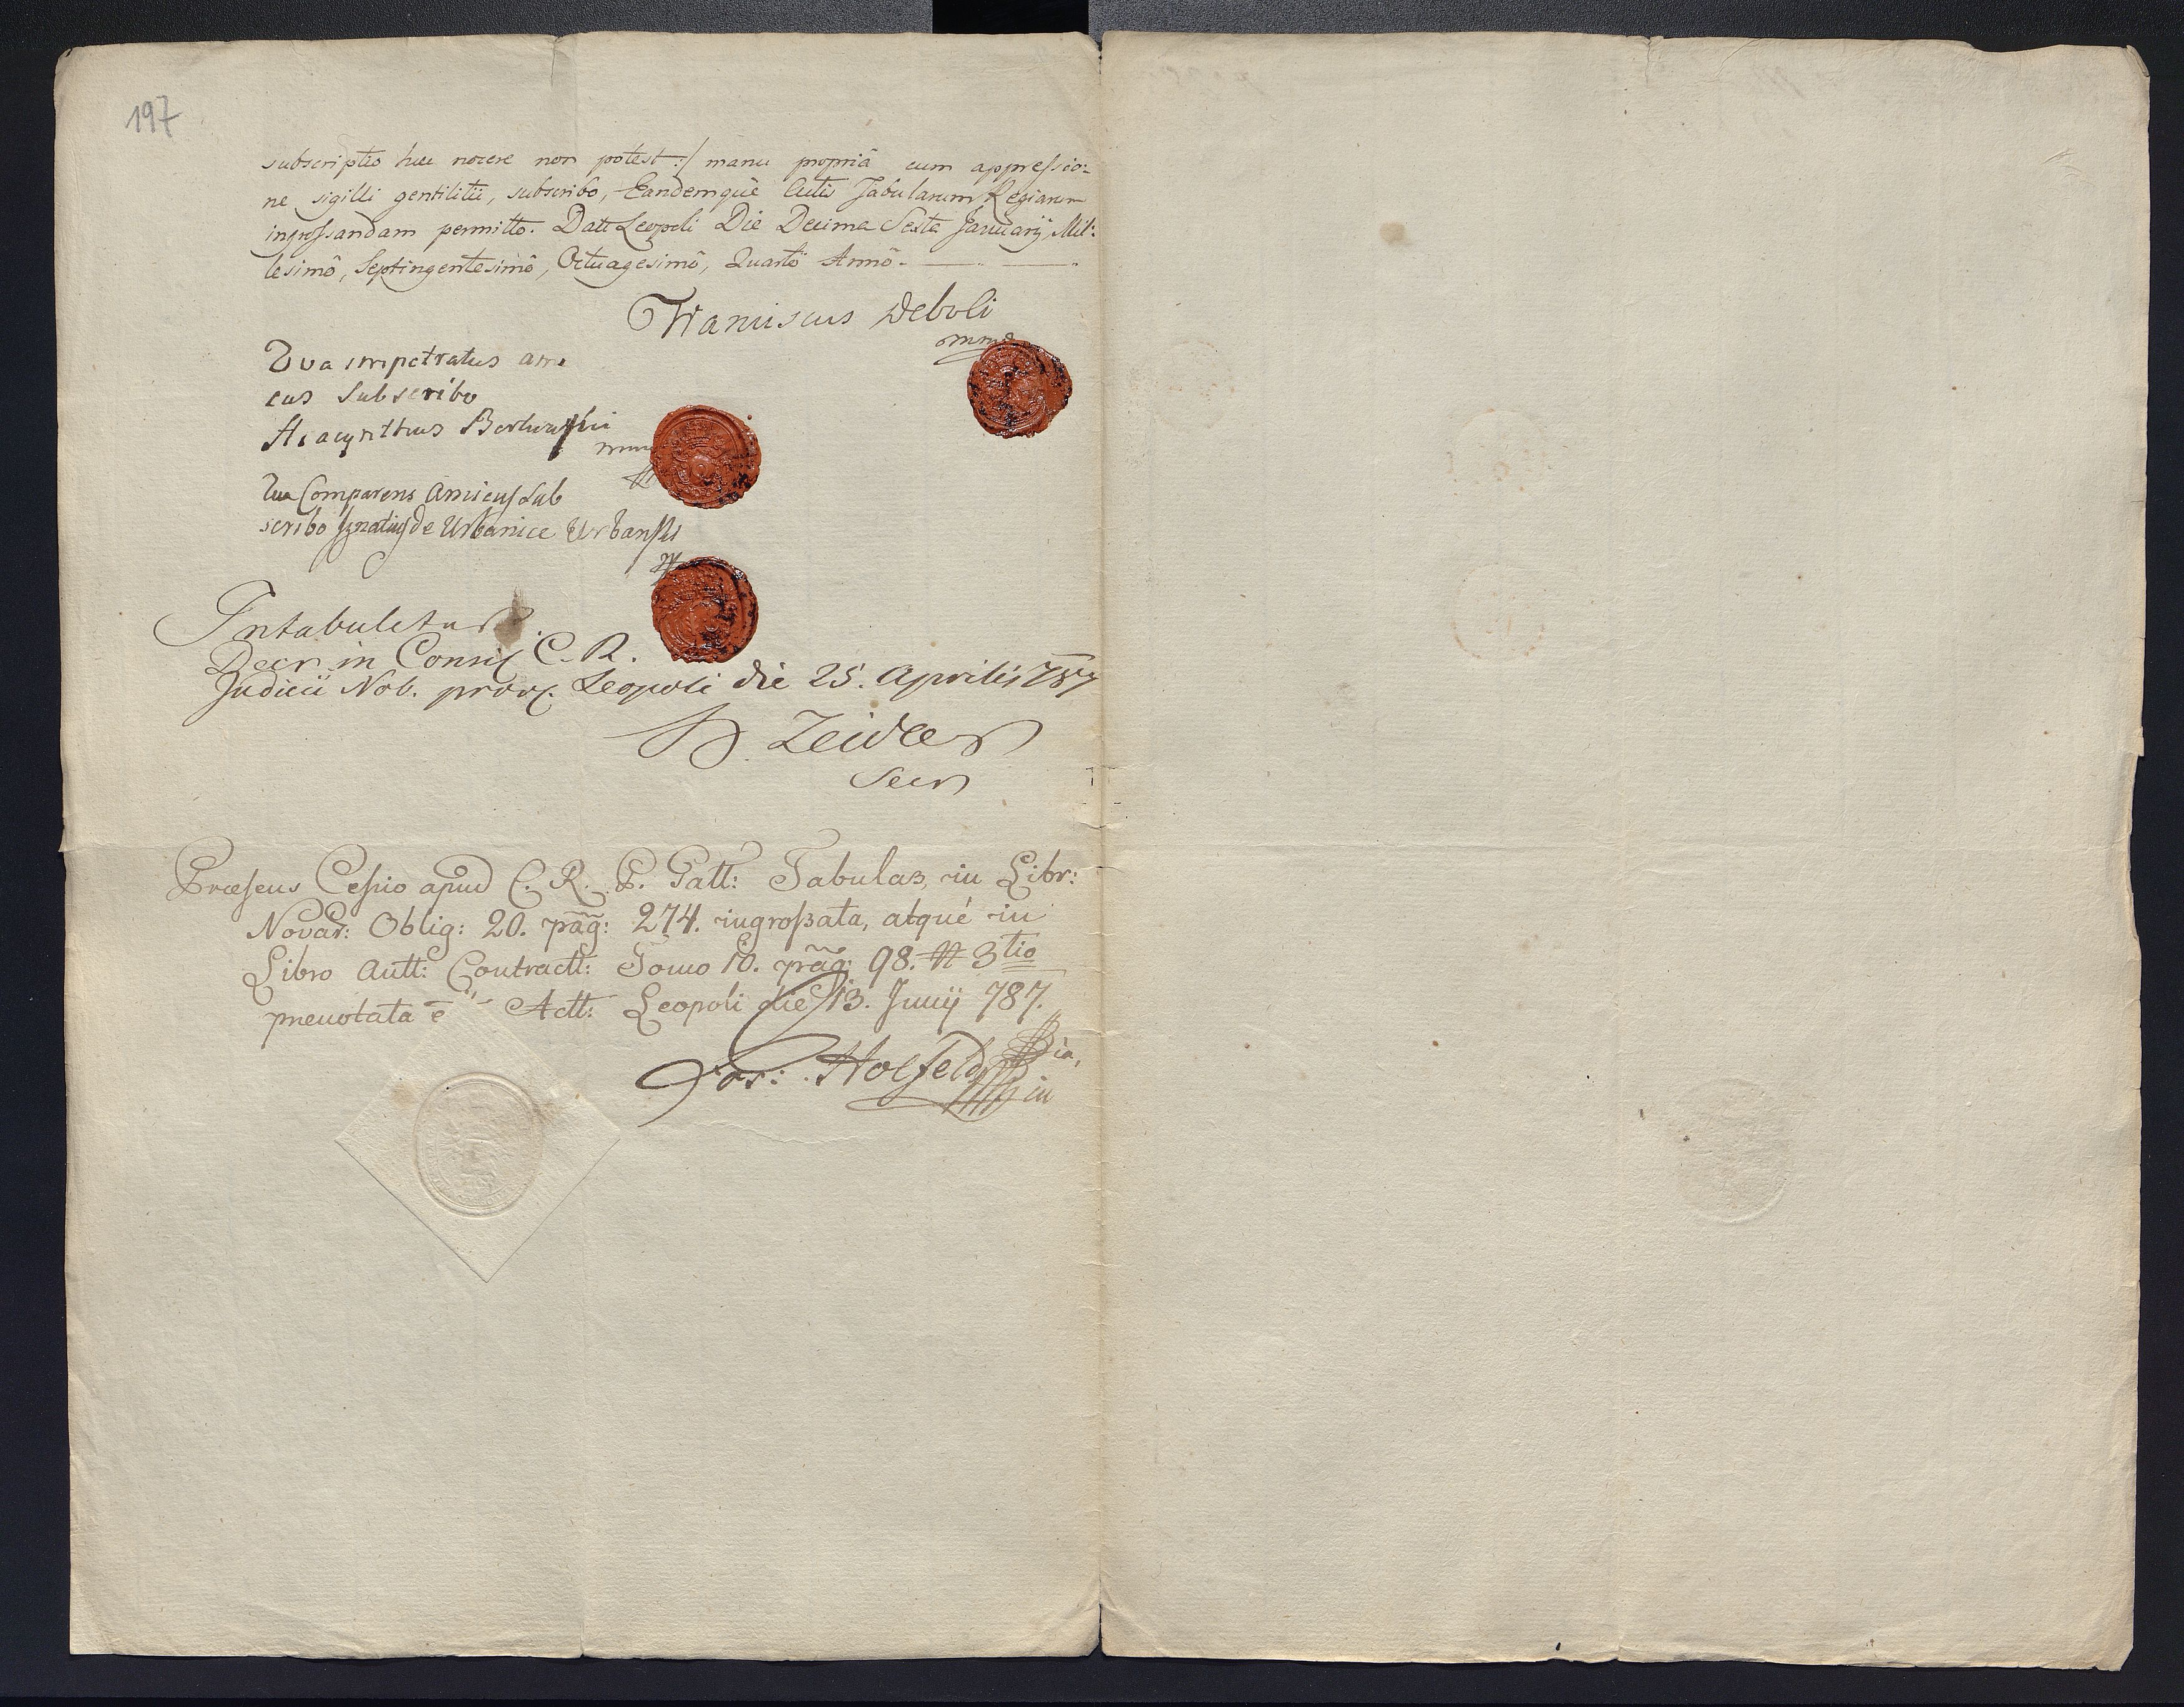 197
subscriptio huic nocere non potest :/ manu propriâ cum appressio:
ne sigilli gentilitii, subscribo, Eandemquè Actis Tabularum Regiarum
ingrossandam permitto. Datt Leopoli Die Decima Sexta Januarÿ, Mil:
lesimô, Septingentesimô, Octuagesimô, Quartô Annô.
Franciscus Deboli
mmp
Qva impetratus ami
cus Subscribo
Hiacynthus
Qua Comparens Amicus Sub
scribo Ignatius de Urbanice Urbanski
Intabuletur
Decr. in Consil. C. R.
Judicii Nob. prov. Leopoli die 25. Aprilis 787
Zeidler
Secr
Præsens Cessio apud C. R. P. Gall: Tabulas, in Libr:
Novar: Oblig: 20. pãg: 274. ingroßata, atqué in
Libro Antt: Contractt: Tomo 10. pãg: 98. N 3tio
prenotata ẽ Actt: Leopoli die 13. Junÿ 787.
Jos: Holfeld